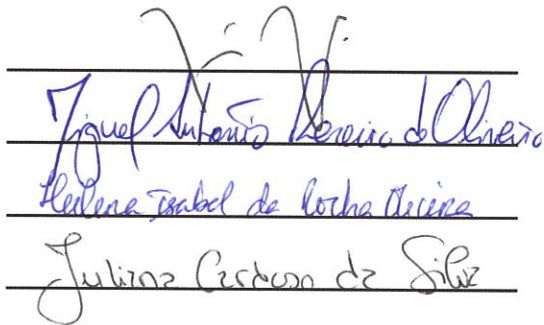 Miguel António Pereira de Oliveira
Helena Isabel da Rocha
Juliana Cardoso da Silva